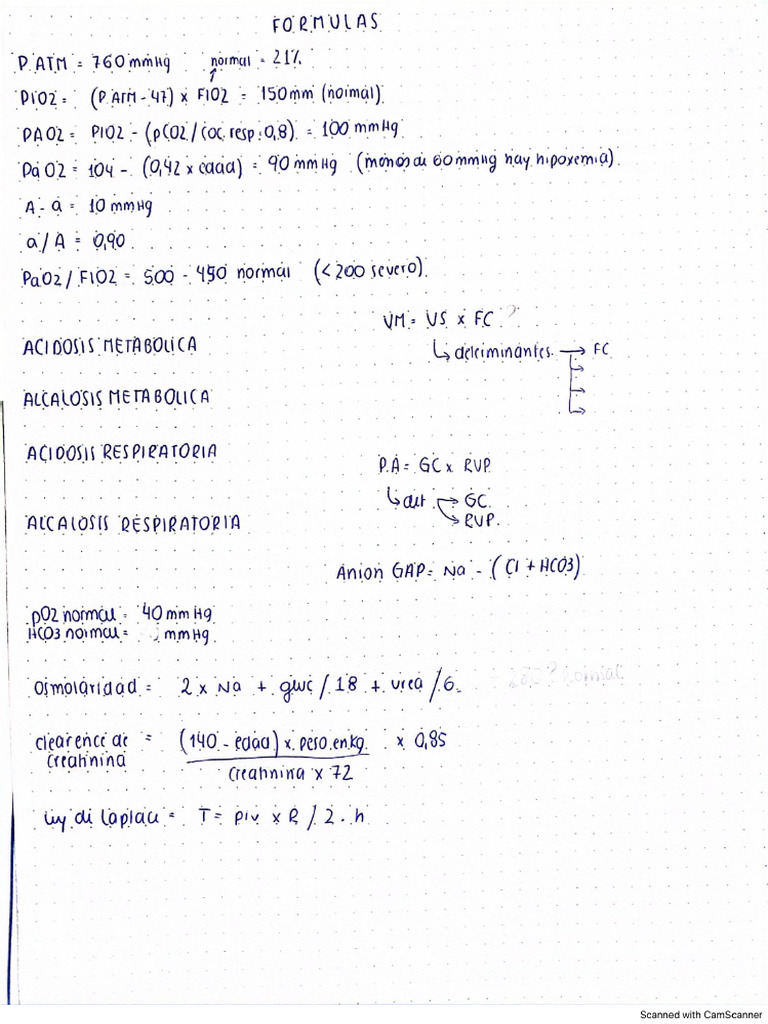 FORMULAS
P ATM = 760 mmHg normal = 21%
PIO2 = (P ATM - 47) x FIO2 = 150 mm (normal)
PAO2 = PIO2 - (pCO2 / coc. resp: 0,8) = 100 mmHg
PaO2 = 104 - (0,42 x edad) = 90 mmHg (menos de 60 mmHg hay hipoxemia)
A - a = 10 mmHg
a / A = 0,90
PaO2 / FIO2 = 500 - 450 normal (< 200 severo)
VM = VS x FC ?
↳ determinantes → FC
ACIDOSIS METABOLICA
ALCALOSIS METABOLICA
ACIDOSIS RESPIRATORIA
P.A = GC x RVP
↳ det → GC.
→ RVP.
ALCALOSIS RESPIRATORIA
Anion GAP = Na - (Cl + HCO3)
pO2 normal = 40 mmHg
HCO3 normal = mmHg
Osmolaridad = 2 x Na + gluc / 18 + urea / 6. normal
clearence de creatinina = (140 - edad) x peso en kg. x 0,85
creatinina x 72
ley de Laplace = T = piv x R / 2 . h
Scanned with CamScanner